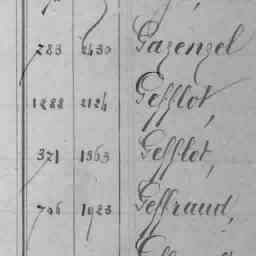 783 2430 Gazenzel
1288 2124 Gefflot,
321 1363 Gefflot,
706 1923 Geffraud,